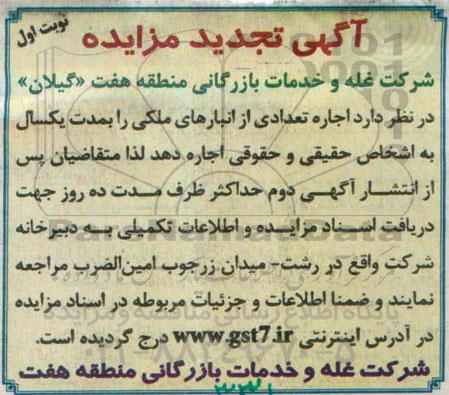 نوبت اول
آگهی تجدید مزایده
شرکت غله و خدمات بازرگانی منطقه هفت «گیلان»
در نظر دارد اجاره تعدادی از انبارهای ملکی را بمدت یکسال
به اشخاص حقیقی و حقوقی اجاره دهد لذا متقاضیان پس
از انتشار آگهی دوم حداکثر ظرف مدت ده روز جهت
دریافت اسناد مزایده و اطلاعات تکمیلی به دبیرخانه
شرکت واقع در رشت- میدان زرجوب امین‌الضرب مراجعه
نمایند و ضمنا اطلاعات و جزئیات مربوطه در اسناد مزایده
در آدرس اینترنتی www.gst7.ir درج گردیده است.
شرکت غله و خدمات بازرگانی منطقه هفت